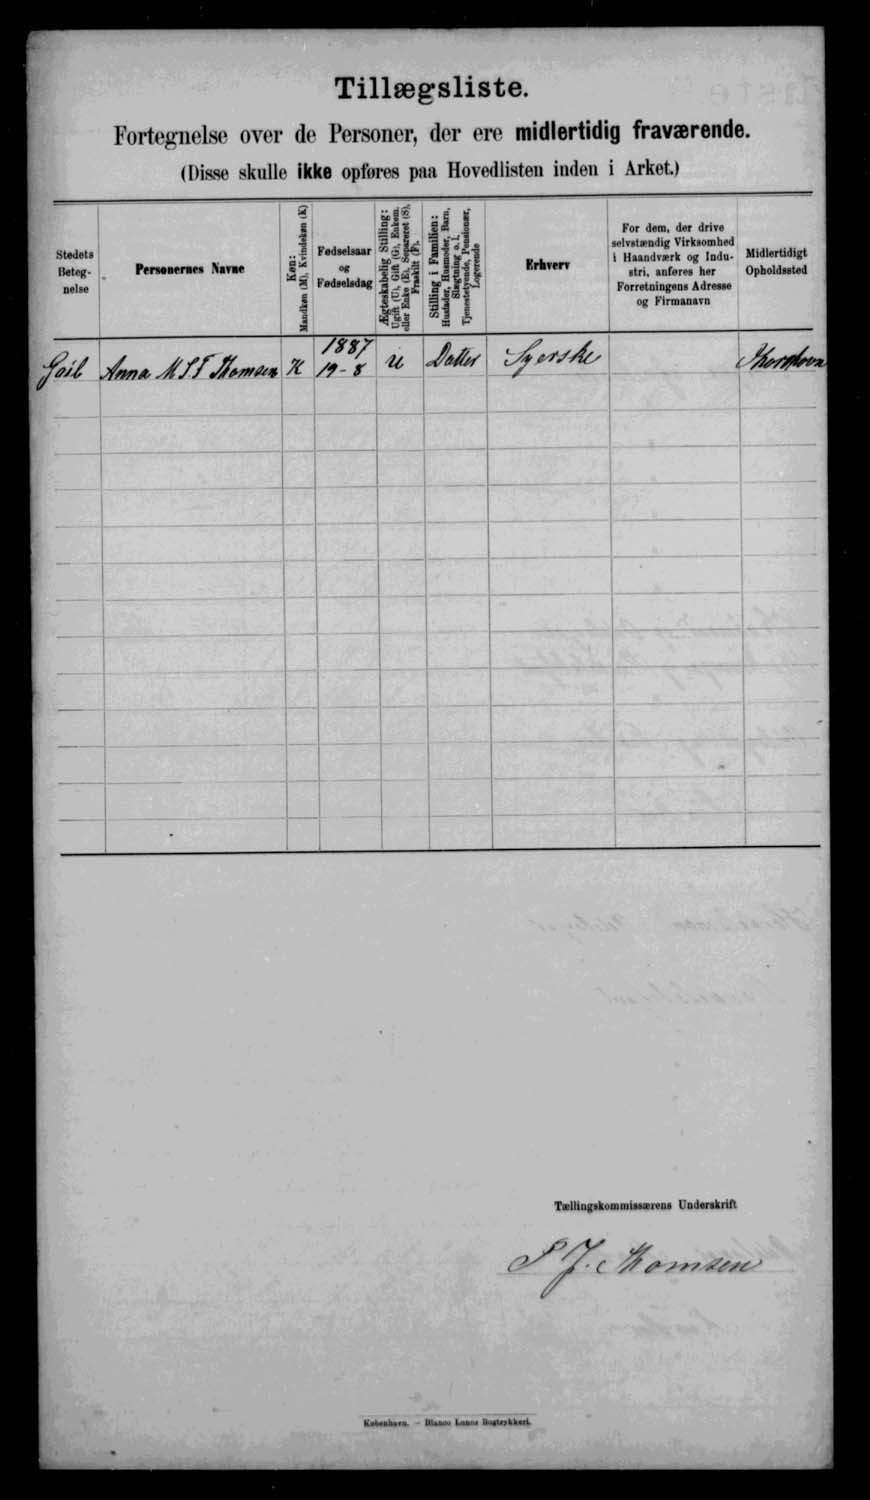 Tillægsliste.
Fortegnelse over de Personer, der ere midlertidig fraværende.
(Disse skulle ikke opføres paa Hovedlisten inden i Arket.)
Stedets
Beteg-
nelse
Personernes Navne
Køn:
Mandkøn (M), Kvindekøn (K)
Fødselsaar
og
Fødselsdag
Ægteskabelig Stilling:
Ugift (U), Gift (G), Enkem.
eller Enke (E), Separeret (S),
Fraskilt (F).
Stilling i Familien:
Husfader, Husmoder, Barn,
Slægtning o. l.
Tjenestetyende, Pensionær,
Logerende
Erhverv
For dem, der drive
selvstændig Virksomhed
i Haandværk og Indu-
stri, anføres her
Forretningens Adresse
og Firmanavn
Midlertidigt
Opholdssted
Anna M S F Thomsen K 1887 19-8 U Datter Syerske
Tællingskommissærens Underskrift
P J. Thomsen
København. – Bianco Lunos Bogtrykkeri.